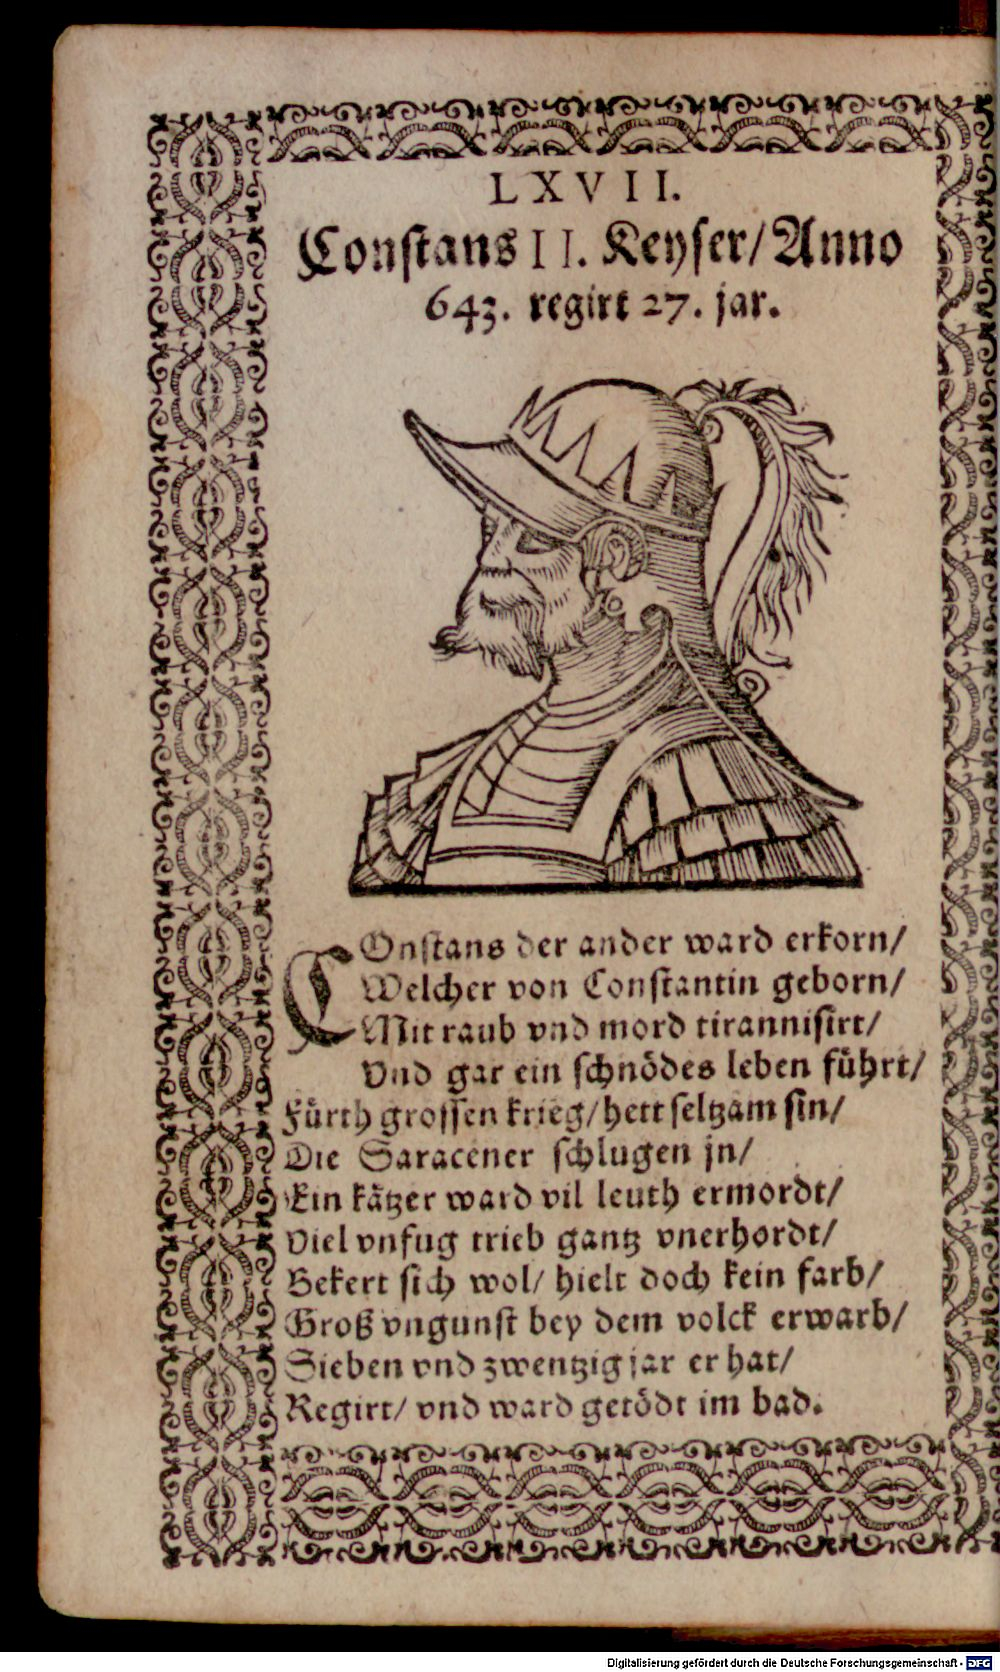 LXVII.
Constans II. Keyser/ Anno
643. regirt 27. jar.
COnstans der ander ward erkorn/
Welcher von Constantin geborn/
Mit raub vnd mord tirannisirt/
Vnd gar ein schnödes leben führt/
Fürth grossen krieg/ hett seltzam sin/
Die Saracener schlugen jn/
Ein kätzer ward vil leuth ermordt/
Viel vnfug trieb gantz vnerhordt/
Bekert sich wol/ hielt doch kein farb/
Groß vngunst bey dem volck erwarb/
Sieben vnd zwentzig jar er hat/
Regirt/ vnd ward getödt im bad.
Digitalisierung gefördert durch die Deutsche Forschungsgemeinschaft - DFG